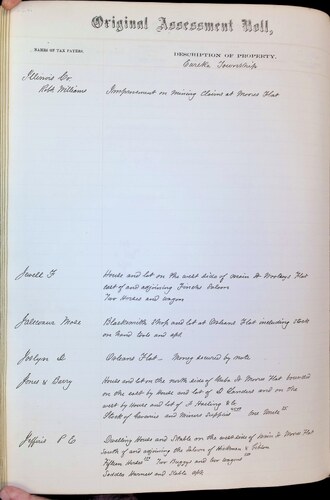 Original Assessment Roll,
NAMES OF TAX PAYERS.
DESCRIPTION OF PROPERTY.
Eureka Township
Illinois Co
Robt Williams
Improvement on Mining Claims at Moores Flat
Jewell F
House and lot on the west side of main st Woolseys Flat
east of and adjoining Saloon
Two Horses and wagon
Moses
Blacksmith Shop and lot at Orleans Flat including stock
on hand tools and
Joslyn D
Orleans Flat — Money secured by note
Jones & Barry
House and lot on the north side of Main St Moores Flat bounded
on the east by House and lot of D and on the
west by House and lot of A &c
Stock of Groceries and Miners supplies One
Jeffries P C
Dwelling House and Stable on the west side of Main st Moores Flat
South of and adjoining the Saloon of &
Fifteen Horses Two Buggies and two wagons
Saddles Harness and Stable